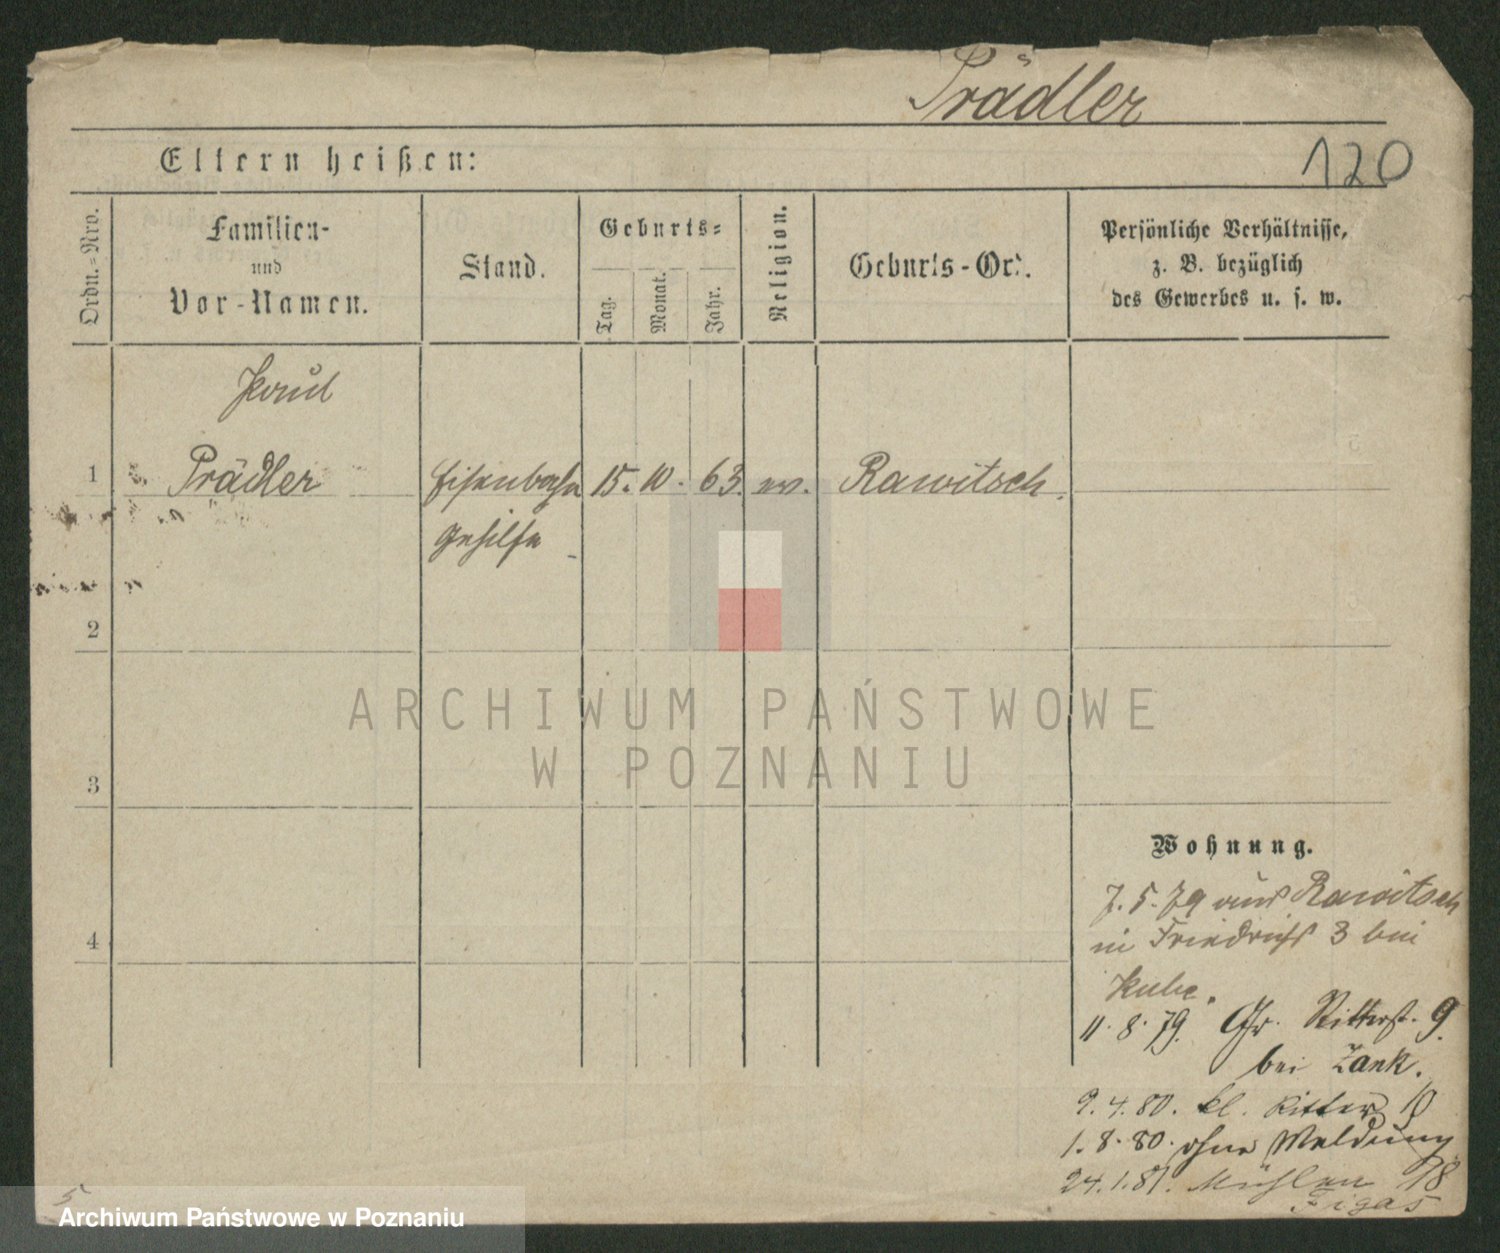 Prädler
120
Eltern heißen:
Ordn.=Nro.
Familien-
und
Vor-Namen.
Stand.
Geburts=
Tag.
Monat.
Jahr.
Religion.
Geburts-Ort.
Persönliche Verhältnisse,
z. B. bezüglich
des Gewerbes u. s. w.
Paul
1 Prädler Eisenbahn 15. 10. 63. ev. Rawitsch.
Gehilfe
2
3
4
Wohnung.
7. 5. 79 aus Rawitsch
in Friedrichs 3 bei
Kube.
11. 8. 79. Gr. Ritterst. 9.
bei Zank.
9. 4. 80. kl. Ritter 10
1. 8. 80. ohne Meldung
24. 1. 81. Mühlen 18
Figas
5
ARCHIWUM PAŃSTWOWE
W POZNANIU
Archiwum Państwowe w Poznaniu